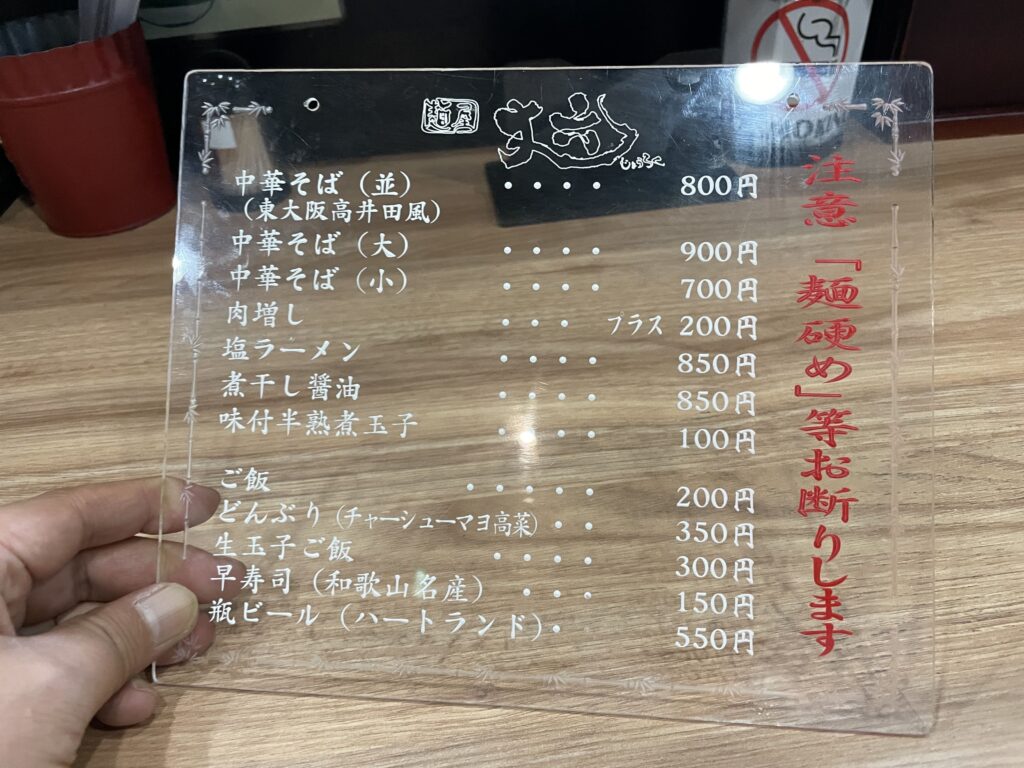 麺屋
じょうろく
中華そば（並）・・・・ 800円
（東大阪高井田風）
中華そば（大）・・・・ 900円
中華そば（小）・・・・ 700円
肉増し ・・・ プラス 200円
塩ラーメン ・・・・ 850円
煮干し醤油 ・・・・ 850円
味付半熟煮玉子 ・・・・ 100円
ご飯 ・・・・・ 200円
どんぶり（チャーシューマヨ高菜）・・ 350円
生玉子ご飯 ・・・・ 300円
早寿司（和歌山名産）・・・ 150円
瓶ビール（ハートランド）・・ 550円
注意「麺硬め」等お断りします